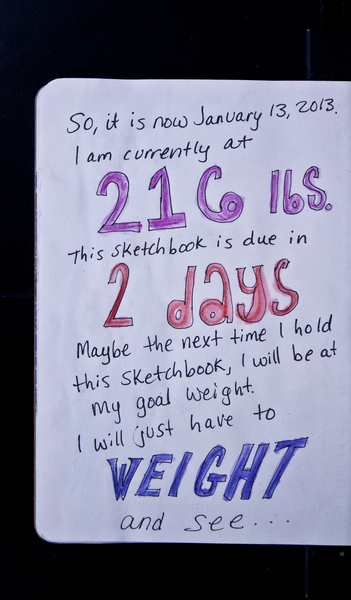 So, it is now January 13, 2013.
I am currently at
216 lbs.
This sketchbook is due in
2 days
Maybe the next time I hold
this sketchbook, I will be at
my goal weight.
I will just have to
WEIGHT
and see...